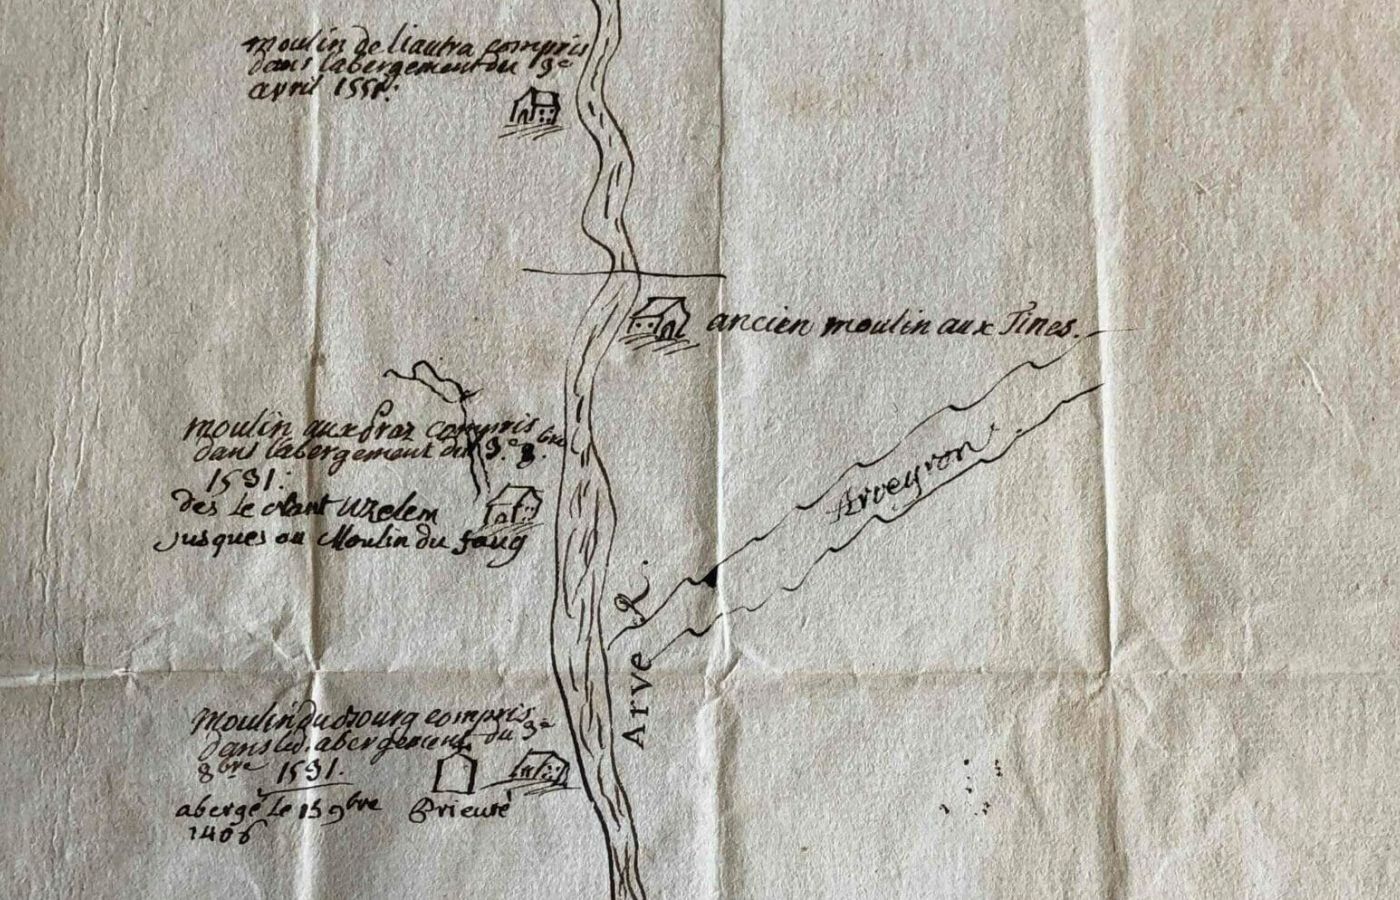 moulin de liautra compris
dans labergement du 9e
avril 1551:
ancien moulin aux Tines.
moulin aux praz compris
dans labergement du 9.e 8.bre
1591:
des Le Nant
jusques au Moulin du foug
Arveyron
Arve R.
Moulin du Bourg compris
dans led. abergement du 9e
8bre 1591.
abergé Le 15 9bre
1406
Prieuré